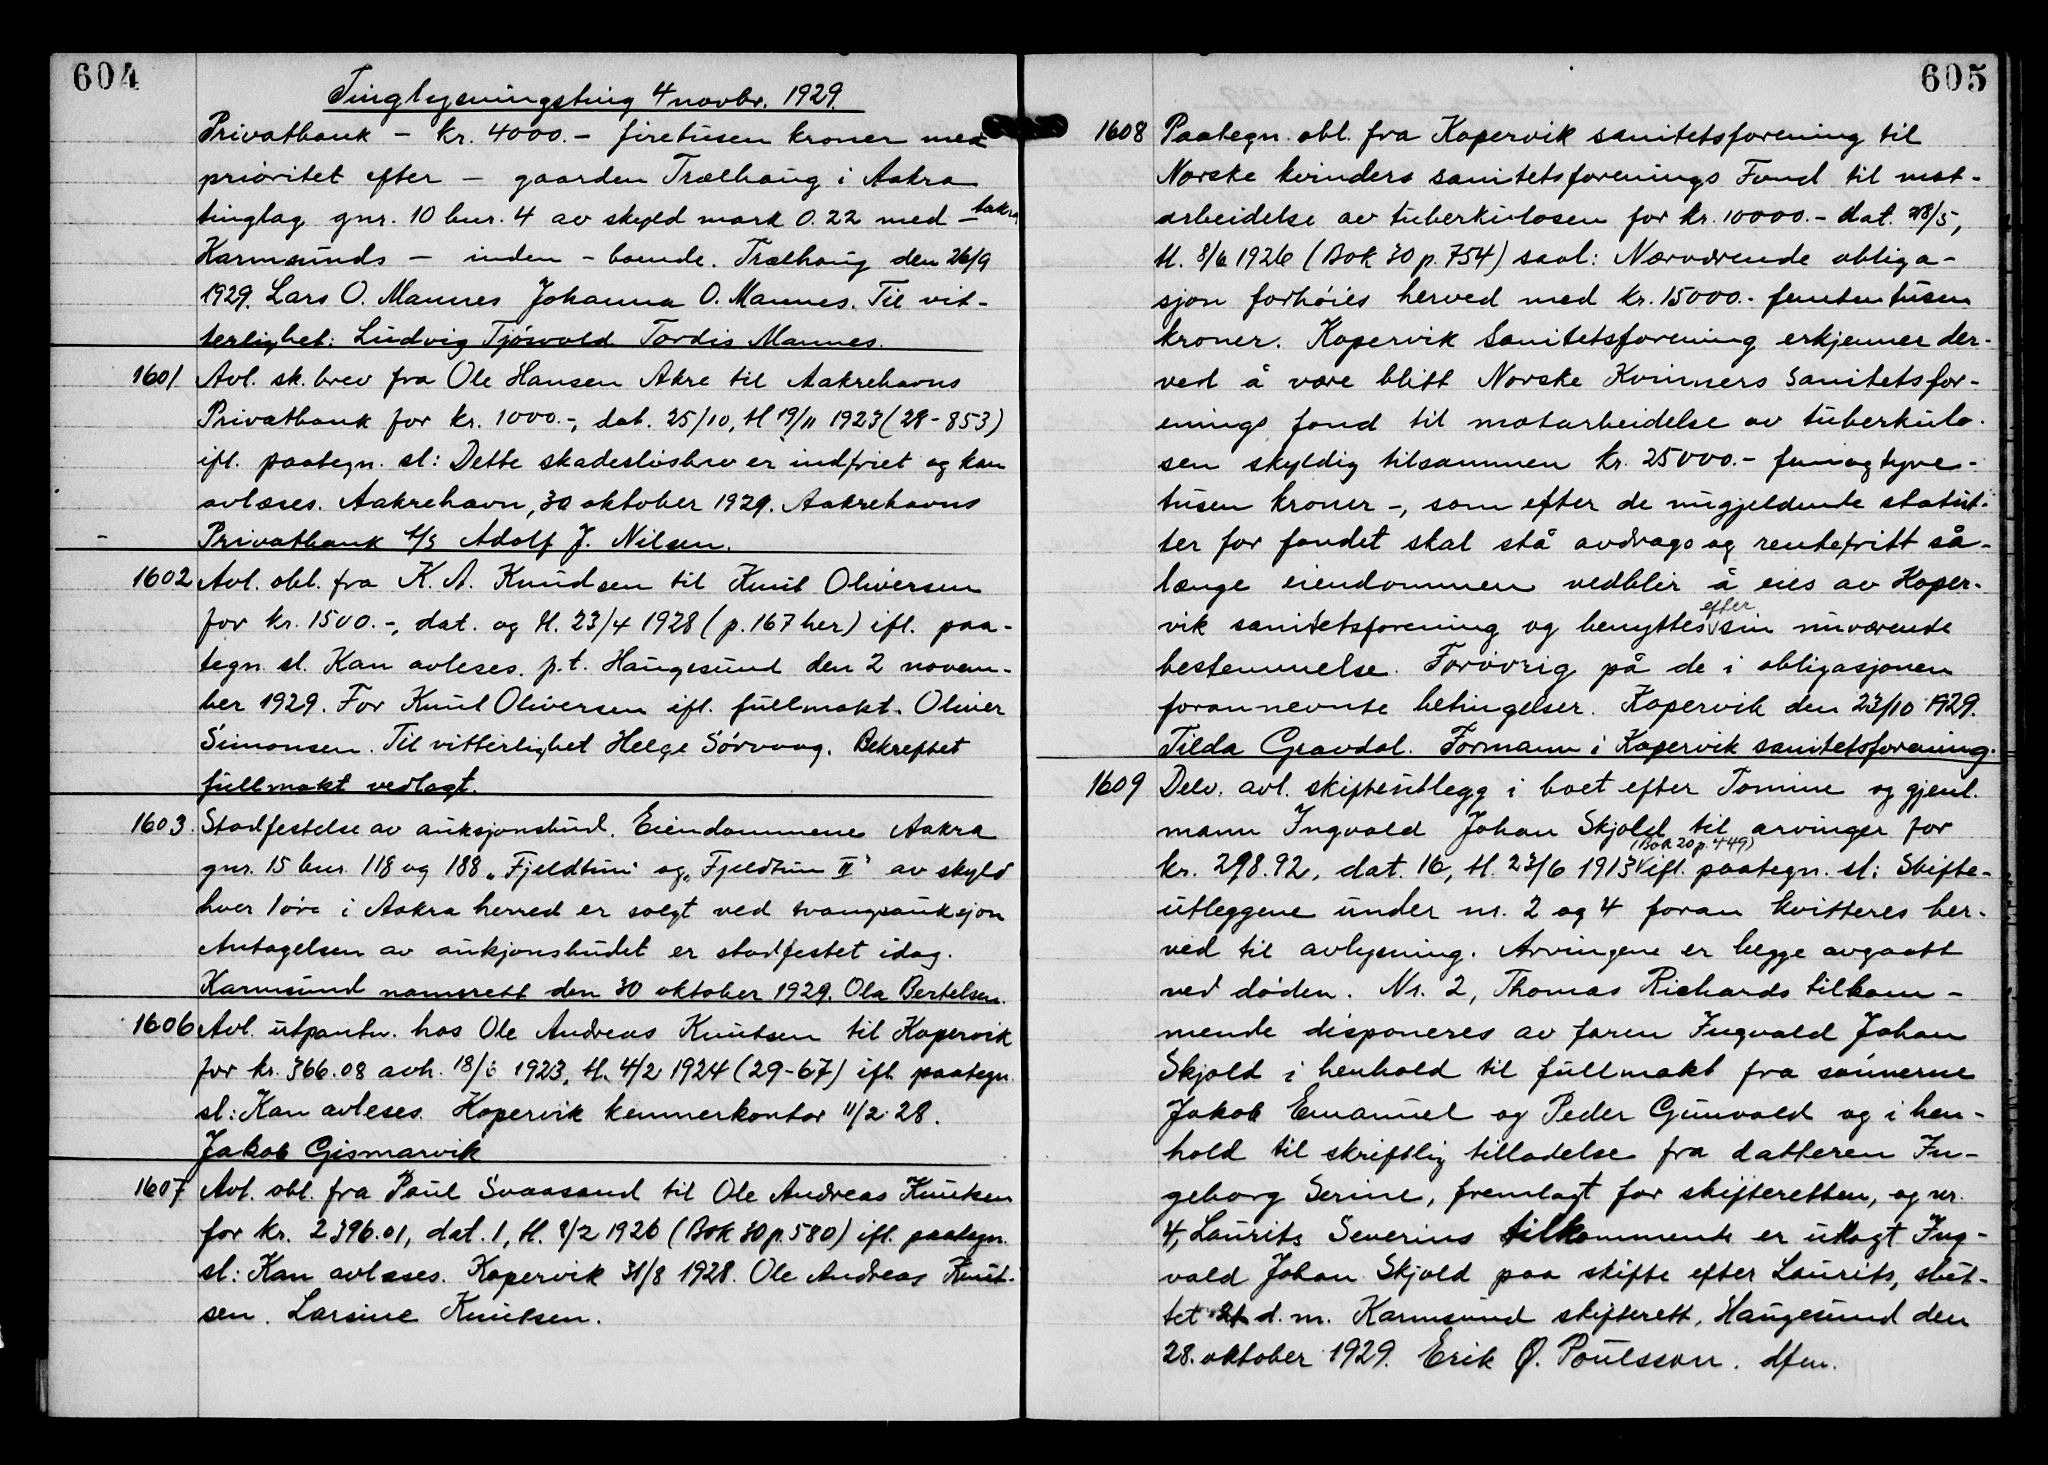 604
Tinglysningsting 4 novbr. 1929.
Privatbank - kr. 4000.- firetusen kroner med
prioritet efter - gaarden Trælhaug i Aakra
tinglag gnr. 10 bnr. 4 av skyld mark 0.22 med - takra
Karmsunds - inden - boende. Trælhaug den 26/9
1929. Lars O. Mannes Johanna O. Mannes. Til vit-
terlighet: Ludvig Tjösvold Tordis Mannes.
1601 Avl. sk. brev fra Ole Hansen Akre til Aakrehavns
Privatbank for kr. 1000.-, dat. 25/10, tl 19/11 1923 (28-853)
ifl. paategn. sl: Dette skadesløsbrev er indfriet og kan
avlæses. Aakrehavn, 30 oktober 1929. Aakrehavns
Privatbank A/S Adolf J. Nilsen.
1602 Avl. obl. fra K. A. Knudsen til Knut Oliversen
for kr. 1500.-, dat. og tl. 23/4 1928 (p. 167 her) ifl. paa-
tegn. sl. Kan avleses. p.t. Haugesund den 2 novem-
ber 1929. For Knut Oliversen ifl. fullmakt. Oliver
Simonsen. Til vitterlighet Helge Sørvaag. Bekreftet
fullmakt vedlagt.
1603. Stadfestelse av auksjonsbud. Eiendommene Aakra
gnr. 15 bnr. 118 og 188 „Fjeldtun" og „Fjeldtun II" av skyld
hver 1 øre i Aakra herred er solgt ved tvangsauksjon
Antagelsen av aukjonsbudet er stadfestet idag.
Karmsund namsrett den 30 oktober 1929. Ola Bertelsen.
1606 Avl. utpantn. hos Ole Andreas Knutsen til Kopervik
for kr. 366.08 avh. 18/6 1923, tl. 4/2 1924 (29-67) ifl. paategn.
sl: Kan avleses. Kopervik kemnerkontor 11/2 28.
Jakob Gismarvik
1607 Avl. obl. fra Paul Svaasand til Ole Andreas Knutsen
for kr. 2396.01, dat. 1, tl. 8/2 1926 (Bok 30 p. 580) ifl. paategn.
sl: Kan avlæses. Kopervik 31/8 1928. Ole Andreas Knut-
sen. Larsine Knutsen.
605
1608 Paategn. obl. fra Kopervik sanitetsforening til
Norske kvinders sanitetsforenings Fond til mot-
arbeidelse av tuberkulosen for kr. 10000.- dat. 28/5,
tl. 8/6 1926 (Bok 30 p. 754) saal: Nærværende obliga-
sjon forhöies herved med kr. 15000.- femtentusen
kroner. Kopervik Sanitetsforening erkjenner der-
ved å være blitt Norske Kvinners Sanitetsfor-
enings fond til motarbeidelse av tuberkulo-
sen skyldig tilsammen kr. 25000.- femogtyve-
tusen kroner -, som efter de nugjeldende statut-
ter for fondet skal stå avdrags og rentefritt så-
længe eiendommen vedblir å eies av Koper-
vik sanitetsforening og benyttes efter sin nuværende
bestemmelse. Forøvrig på de i obligasjonen
forannevnte betingelser. Kopervik den 23/10 1929.
Tilda Gravdal. Formann i Kopervik sanitetsforening.
1609 Delv. avl. skifteutlegg i boet efter Tomine og gjenl.
mann Ingvald Johan Skjold til arvinger for
kr. 298.92, dat. 16, tl. 23/6 1913 (Bok 20 p. 449) ifl. paategn. sl: Skifte-
utleggene under nr. 2 og 4 foran kvitteres her-
ved til avlysning. Arvingene er begge avgaatt
ved døden. Nr. 2, Thomas Richards tilkom-
mende disponeres av faren Ingvald Johan
Skjold i henhold til fullmakt fra sønnerne
Jakob Emanuel og Peder Gunvald og i hen-
hold til skriftlig tilladelse fra datteren In-
geborg Serine, fremlagt for skifteretten, og nr.
4, Laurits Severins tilkommende er utlagt Ing-
vald Johan Skjold paa skifte efter Laurits, slut-
tet 21 d. m. Karmsund skifterett, Haugesund den
28. oktober 1929. Erik Ø. Poulsson. dfm.